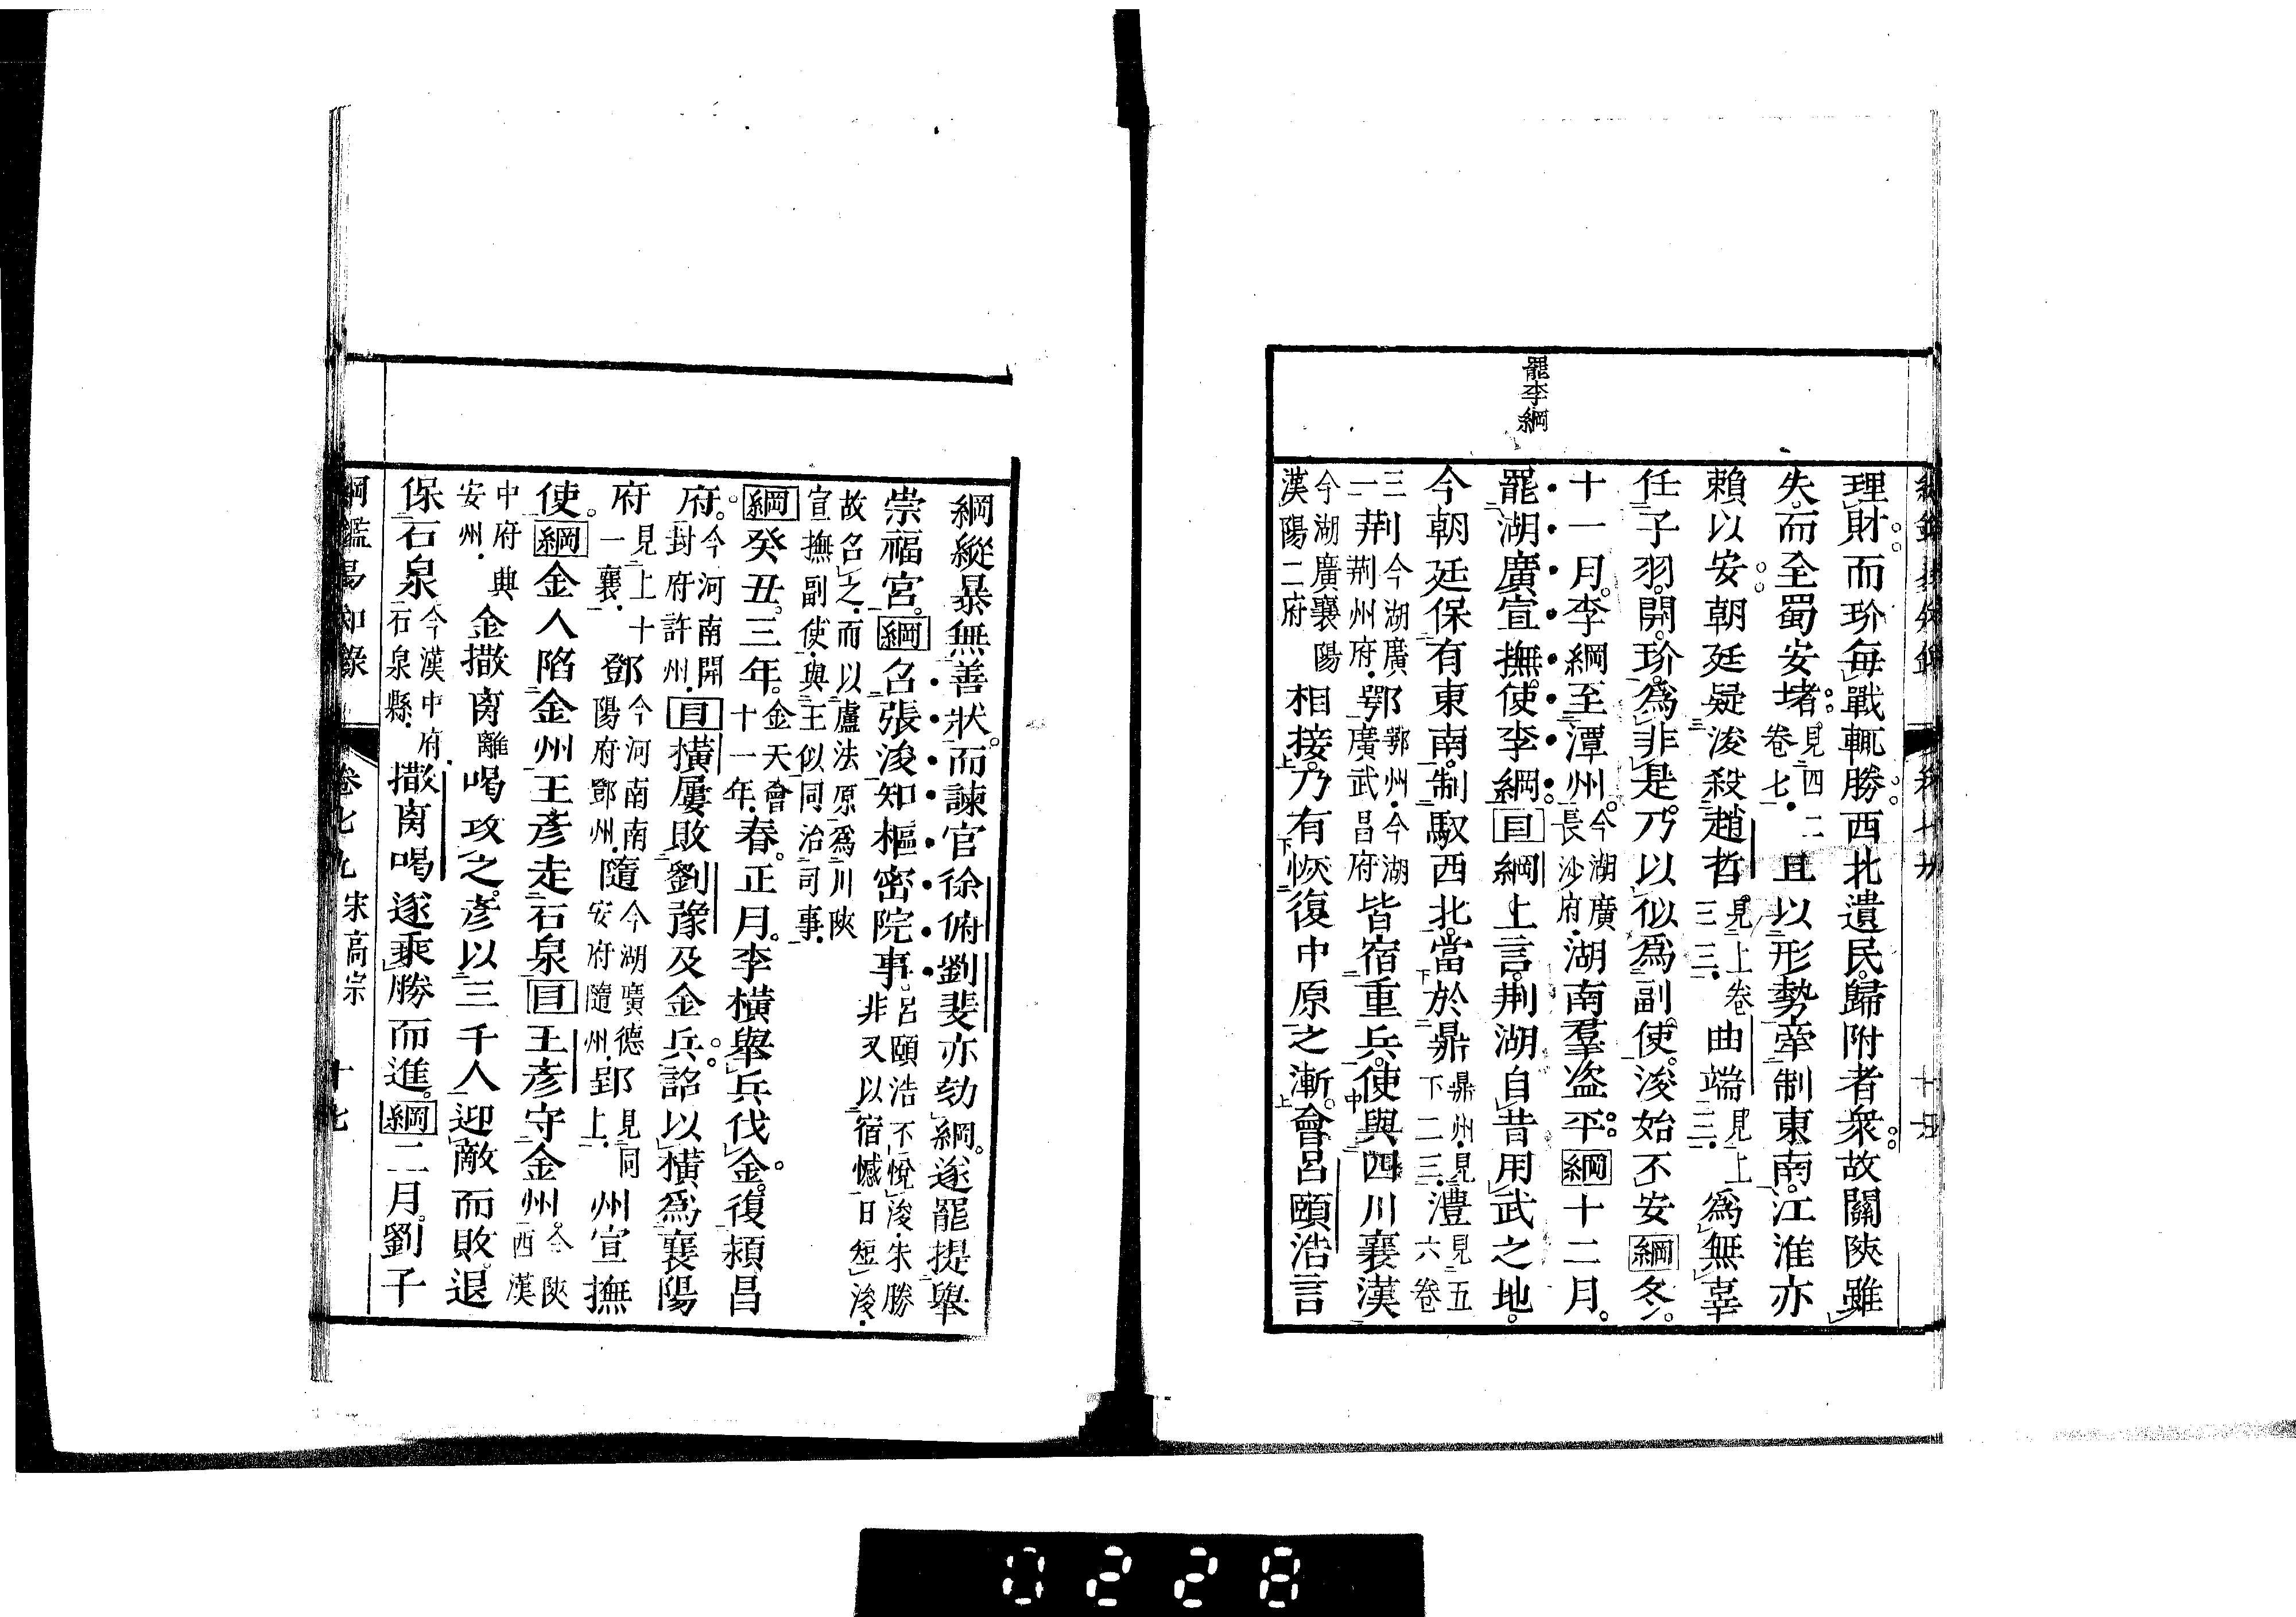 罷李綱
理財而玠每戰輒勝西北遺民歸附者衆故關陝雖
失而全蜀安堵見四二卷七且以形勢牽制東南江淮亦
賴以安朝廷疑浚殺趙哲見上卷三三曲端見上三三爲無辜
任子羽開玠爲非是乃以似爲副使浚始不安綱冬
十一月李綱至潭州今湖廣長沙府湖南羣盗平綱十二月
罷湖廣宣撫使李綱目綱上言荆湖自昔用武之地
今朝廷保有東南制馭西北當於鼎鼎州見下二三澧見五六卷
三一荆今湖廣荆州府鄂鄂州今湖廣武昌府皆宿重兵使與四川襄漢
今湖廣襄陽漢陽二府相接乃有恢復中原之漸會呂頤浩言
綱縱暴無善狀而諫官徐俯劉斐亦劾綱遂罷提舉
崇福宮綱召張浚知樞密院事呂頤浩不悅浚朱勝非又以宿憾日短浚
故召之而以盧法原爲川陝宣撫副使與王似同治司事
綱癸丑三年金天會十一年春正月李橫舉兵伐金復潁昌
府今河南開封府許州目橫屢敗劉豫及金兵詔以橫爲襄陽
府見上十一襄鄧今河南南陽府鄧州隨今湖廣德安府隨州郢見同上州宣撫
使綱金人陷金州王彥走石泉目王彥守金州今陝西漢
中府典安州金撒离離喝攻之彥以三千人迎敵而敗退
保石泉今漢中府石泉縣撒离喝遂乘勝而進綱二月劉子
綱鑑易知錄 卷七九 宋高宗 十七
0228